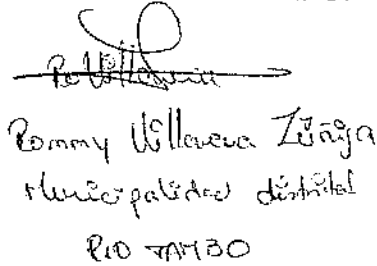 Rommy Villaveva Zúñiga
Municipalidad distrital
RIO TAMBO